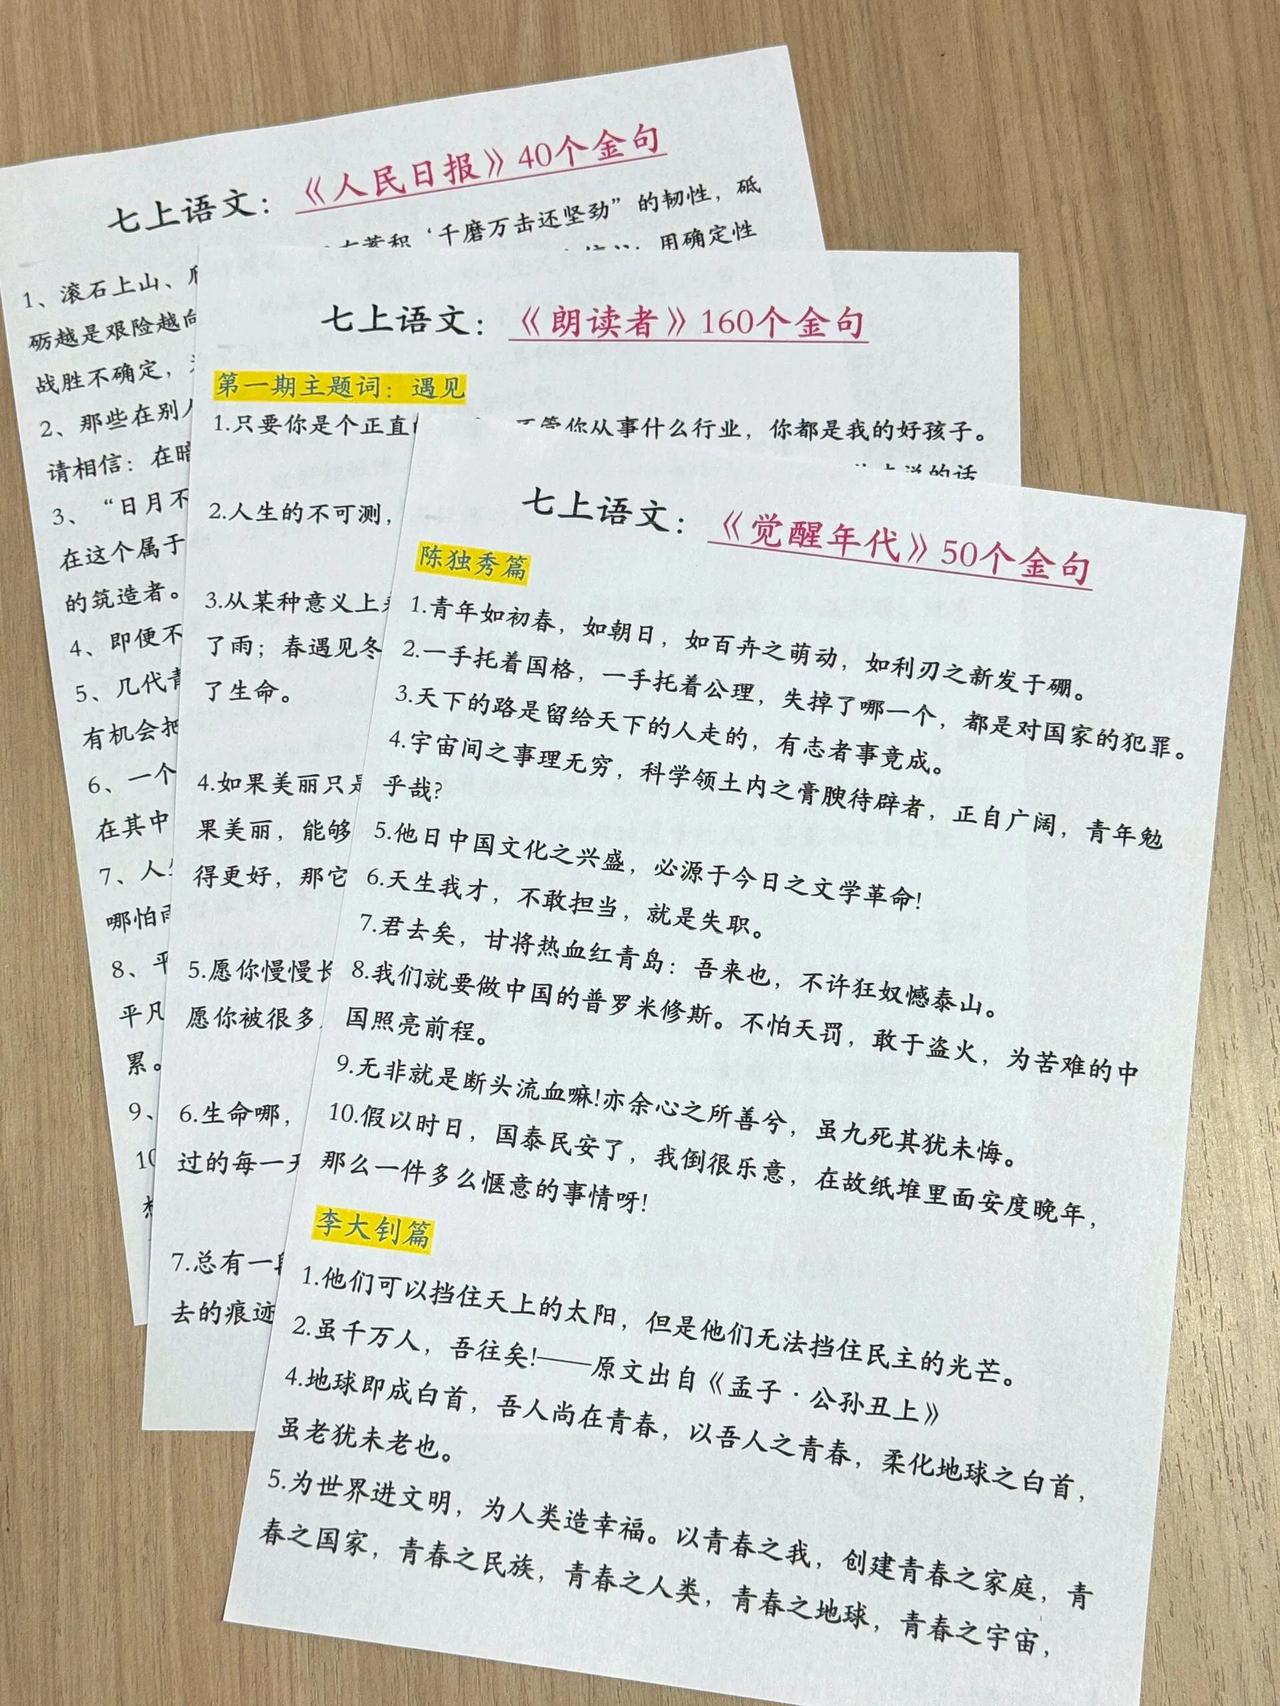 七上语文：《人民日报》40个金句
积“千磨万击还坚劲”的韧性，砥
用确定性
1、滚石上山、
砺越是艰险越向
战胜不确定，
2、那些在别人
请相信：在暗
3、“日月不
在这个属于
的筑造者。
4、即便不
5、几代青
有机会把
6、一个
在其中
7、人生
哪怕雨
8、平
平凡
累。
9、
10
七上语文：《朗读者》160个金句
第一期主题词：遇见
1.只要你是个正直 不管你从事什么行业，你都是我的好孩子。
说的话
2.人生的不可测，
3.从某种意义上来
了雨；春遇见冬
了生命。
4.如果美丽只是
果美丽，能够
得更好，那它
5.愿你慢慢长
愿你被很多
6.生命哪，
过的每一天
7.总有一段
去的痕迹
七上语文：《觉醒年代》50个金句
陈独秀篇
1.青年如初春，如朝日，如百卉之萌动，如利刃之新发于硎。
2.一手托着国格，一手托着公理，失掉了哪一个，都是对国家的犯罪。
3.天下的路是留给天下的人走的，有志者事竟成。
4.宇宙间之事理无穷，科学领土内之膏腴待辟者，正自广阔，青年勉
乎哉?
5.他日中国文化之兴盛，必源于今日之文学革命!
6.天生我才，不敢担当，就是失职。
7.君去矣，甘将热血红青岛：吾来也，不许狂奴憾泰山。
8.我们就要做中国的普罗米修斯。不怕天罚，敢于盗火，为苦难的中
国照亮前程。
9.无非就是断头流血嘛!亦余心之所善兮，虽九死其犹未悔。
10.假以时日，国泰民安了，我倒很乐意，在故纸堆里面安度晚年，
那么一件多么惬意的事情呀!
李大钊篇
1.他们可以挡住天上的太阳，但是他们无法挡住民主的光芒。
2.虽千万人，吾往矣!——原文出自《孟子·公孙丑上》
4.地球即成白首，吾人尚在青春，以吾人之青春，柔化地球之白首，
虽老犹未老也。
5.为世界进文明，为人类造幸福。以青春之我，创建青春之家庭，青
春之国家，青春之民族，青春之人类，青春之地球，青春之宇宙，